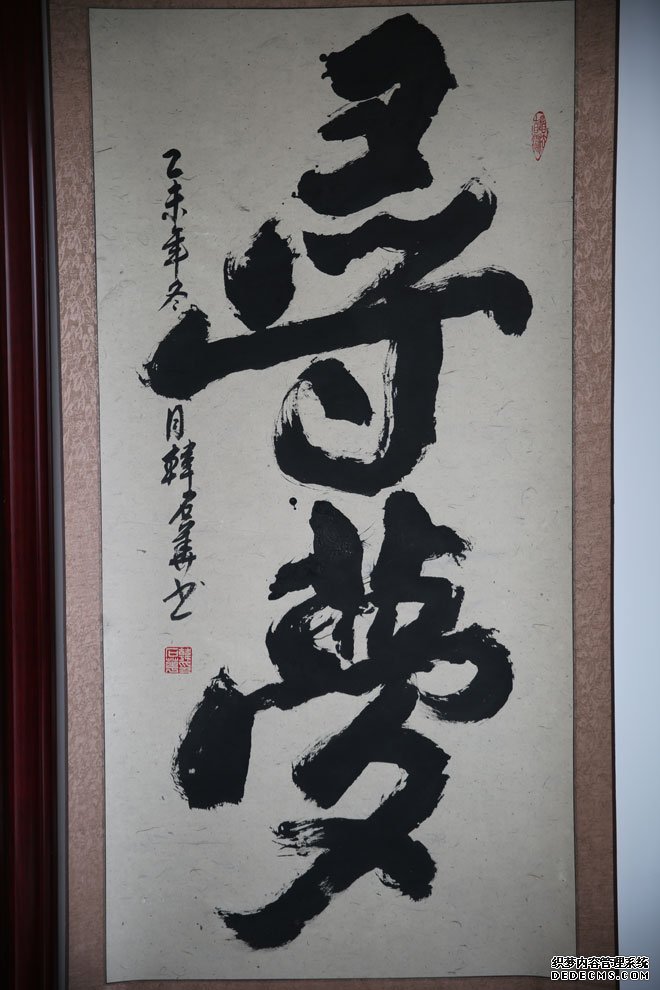 尋夢
乙未年冬月韓石華书
织梦内容管理系统
DEDECMS.COM